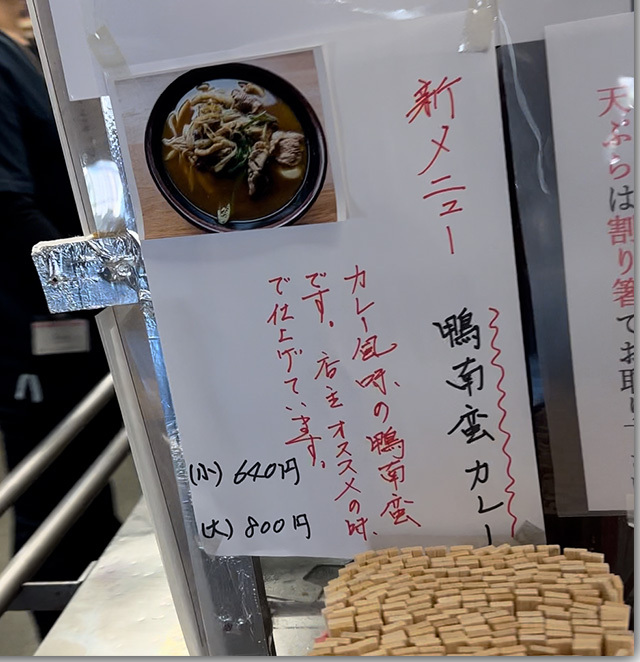 新メニュー
鴨南蛮カレー
カレー風味の鴨南蛮
です。店主オススメの味
で仕上げています。
(小) 640円
(大) 800円
天ぷらは割り箸でお取り